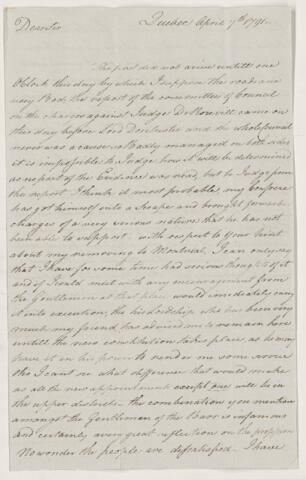 Quebec April 7th 1791
Dear Sir
The post did not arrive untill one
OClock this day by which I suppose the roads are
very Bad, the report of the committee of Council
on the charges against Judge DeRouvill came on
this day before Lord Dorchester and the whole
never was a cause so Badly managed on both sides
it is impossible to Judge how it will be determined
as no part of the Evidence was read, but to Judge from
the report I think it most probable my confrere
has got himself into a Scrape and brought forward
charges of a very serious nature that he has not
been able to support – with respect to your hint
about my removing to Montreal, I can only say
that I have for some time had serious thoughts of it
and if I could meet with any encouragement from
the Gentlemen at that place would immediately carry
it into execution, tho his Lordship who has been very
much my friend has advised me to remain here
untill the new constitution takes place, as he may
have it in his power to render me some service
tho I cant see what difference that would make
as all the new appointments except one will be in
the upper districts – the combination you mention
amongst the Gentlemen of the Barr is infamous
and certainly a very great reflection on the
No wonder the people are dissatisfied. I have